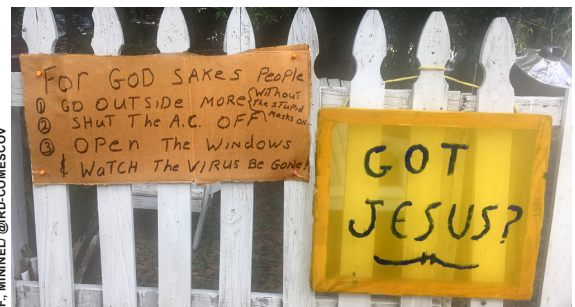 FOR GOD SAKES PEOPLE
① GO OUTSIDE MORE {WITHOUT
The STUPID
Masks ON.
② SHUT The A.C. OFF
③ OPEN The WINDOWS
& WATCH The VIRUS BE GONE!
GOT
JESUS?
MININEL/ @IRD-COMESCOV